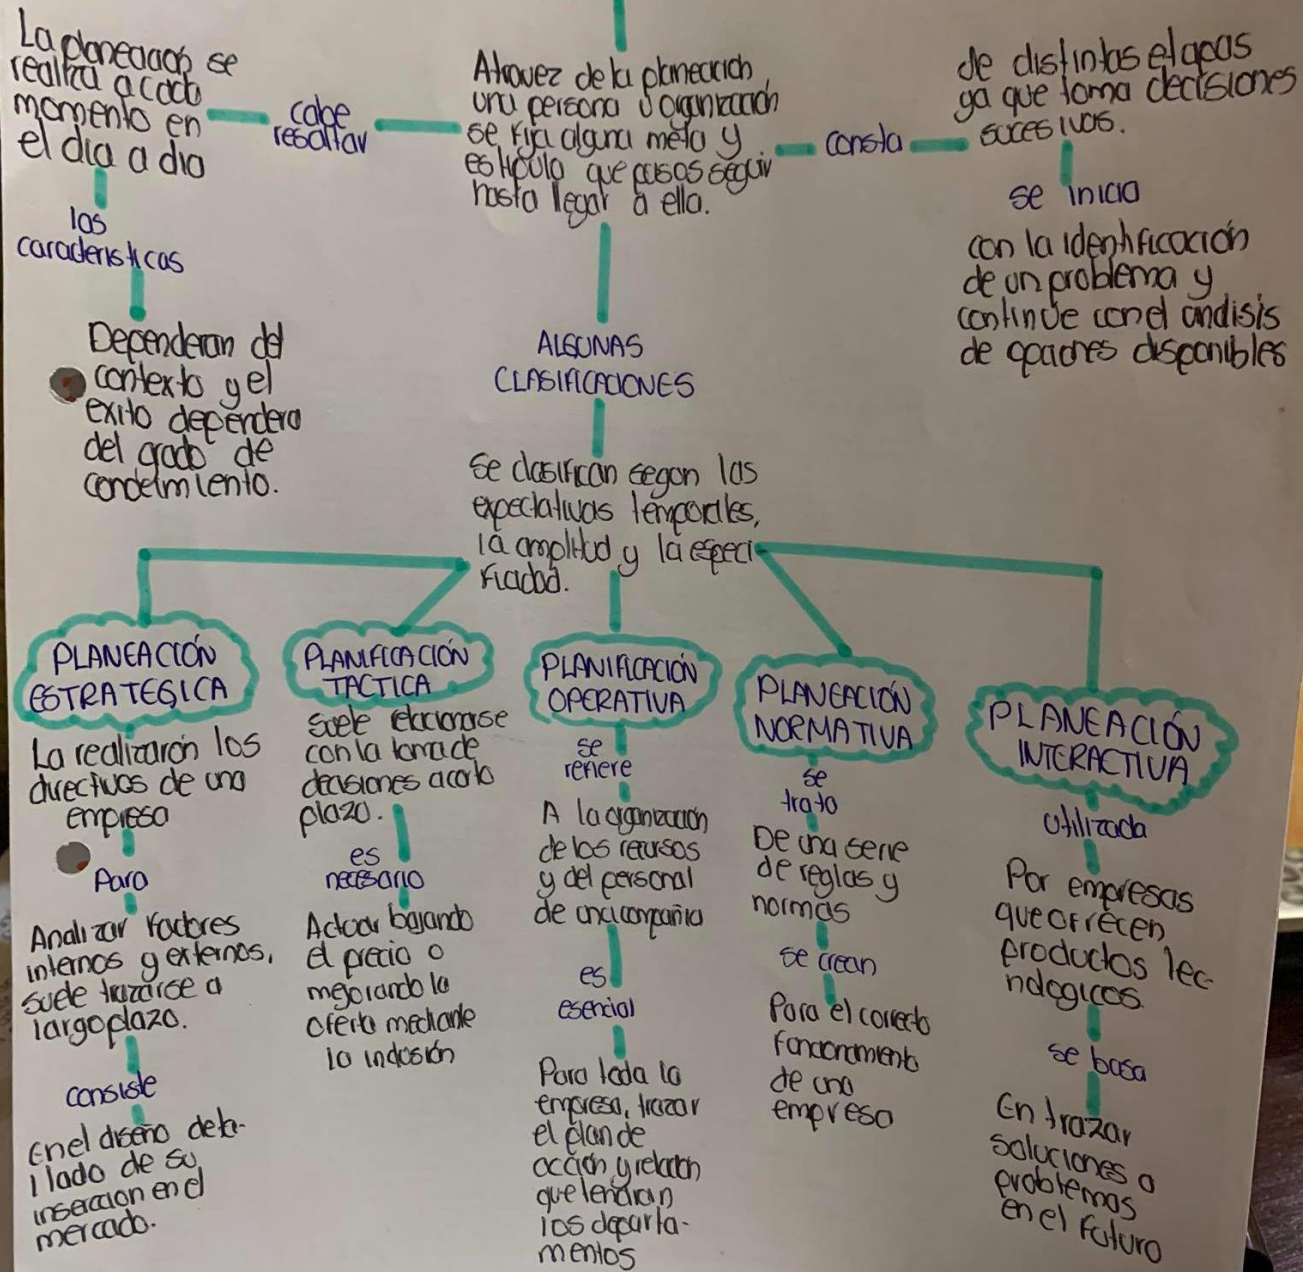 La planeación se
realiza a cada
momento en
el dia a dia
cabe
resaltar
Atravez de la planeación
una persona u organización
se fija alguna meta y
estipula que pasos seguir
hasta legar a ella.
consta
de distintas etapas
ya que toma decisiones
sucesivas.
se inicia
con la identificación
de un problema y
continúe con el análisis
de opciones disponibles
las
caracteristicas
Dependeran del
contexto y el
exito dependera
del grado de
ALGUNAS
CLASIFICACIONES
se clasifican segun las
expectativas temporales,
la amplitud y la especi-
ficidad.
PLANEACIÓN
ESTRATEGICA
La realizaron los
directivos de una
empresa
Para
Analizar factores
internos y externos,
suele trazarse a
largo plazo.
consiste
En el diseño deta-
llado de su
inserccion en el
mercado.
PLANIFICACIÓN
TACTICA
suele relacionarse
con la toma de
decisiones a corto
plazo.
es
necesario
Actuar bajando
el precio o
mejorando la
oferta mediante
la inclusión
PLANIFICACIÓN
OPERATIVA
se
refiere
A la organización
de los recursos
y del personal
de una compañia
es
esencial
Para toda la
empresa, trazar
el plan de
acción y relación
que tendran
los departa-
mentos
PLANEACIÓN
NORMATIVA
se
trata
De una serie
de reglas y
normas
se crean
Para el correcto
funcionamiento
de una
empresa
PLANEACIÓN
INTERACTIVA
Utilizada
Por empresas
que ofrecen
productos tec-
nologicos.
se basa
En trazar
soluciones a
problemas
en el futuro